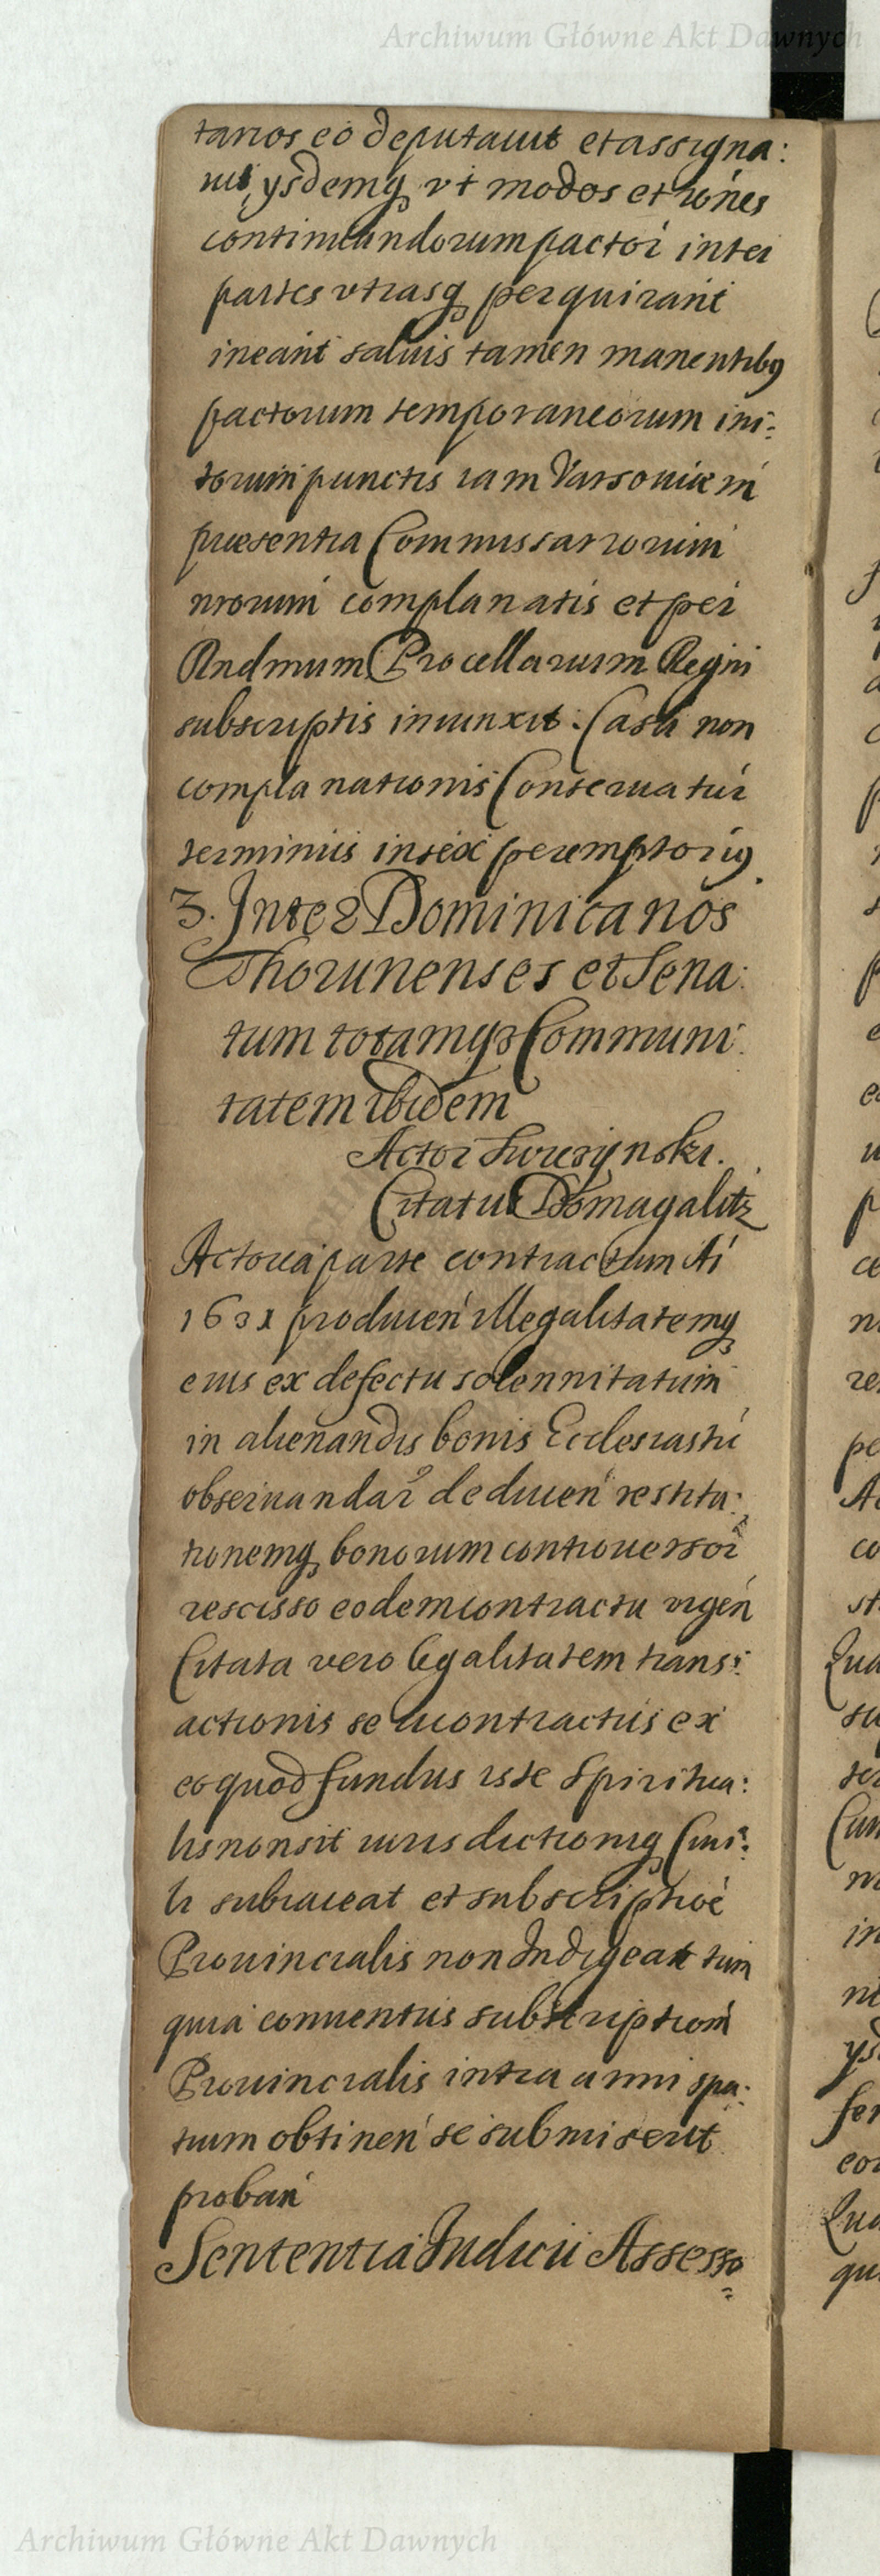 Archiwum Główne Akt Dawnych
tarios eo deputauit et assigna:
uit, ysdemq vt modos et rones
continuandorum pactor inter
partes vtrasq perquirant
ineant saluis tamen manentibq
pactorum temporaneorum ini:
torum punctis iam Varsouiae in
praesentia Commissariorum
nrorum complanatis et per
Rndmum Procellarium Regni
subscriptis iniunxit. Casu non
complanationis Conseruatur
terminus insex peremptoriq
3. Inter Dominicanos
Thorunenses et Sena:
tum totamqs Communi:
tatem ibidem
Actor Swiezynski.
Citatus Domagalitz
Actorea parte contractum Ai
1631 producen illegalitatemq
eius ex defectu solennitatum
in alienandis bonis Ecclesiasti
obseruandar deducen restitu:
tionemq bonorum controuersor
rescisso eodem contractu vrgen
Citata vero legalitatem trans:
actionis seu contractus ex
eo quod fundus iste Spiritua:
lis non sit iurisdictioniq Ciui:
li subiaceat et subscriptioe
Prouincialis non Indigeat tum
quia conuentus subscriptiom
Prouincialis intra anni spa:
tium obtinen se submiserit
proban
Sententia Iudicii Assesso
Archiwum Główne Akt Dawnych